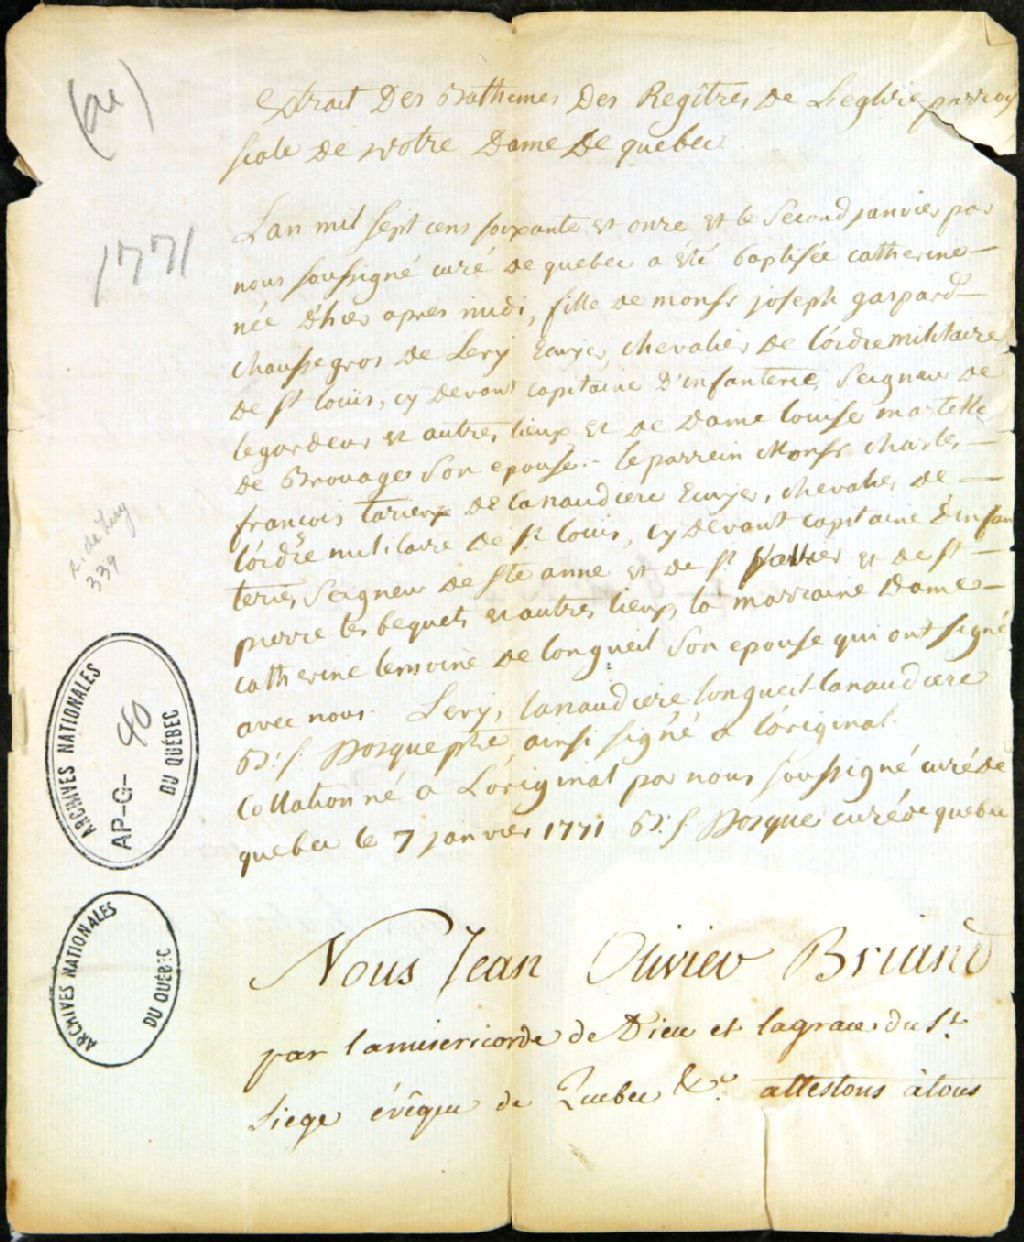 (au)
Extrait Des Bathemes Des Regitres de Leglise parroy
siale de notre Dame De quebec
1771
Lan mil sept cens soixante et onze et le second janvier par
nous soussigné curé de quebec a été baptisée catherine
née d'hier apres midi, fille de monsr joseph gaspard
chaussegros de Lery Ecuyer, chevalier de l'ordre militaire
de st louis, cy devant capitaine d'infanterie, Seigneur de
legardeur et autres lieux et de Dame louise martelle
de Brouages son epouse. le parrein Monsr charles
francois tarieux de lanaudiere Ecuyer, chevalier de
l'ordre militaire de st louis, cy devant capitaine d'infan
terie, Seigneur de ste anne et de st et de st
pierre les bequets et autres lieux, la marraine Dame
catherine lemoine de longueil son epouse qui ont signé
avec nous. Lery, lanaudiere longueil lanaudiere
B: f. Dosque ptre ainsi signé a l'original.
Collationné a L'original par nous soussigné curé de
quebec le 7 janvier 1771 B: f Dosque curé de quebec
R. de Lery
339
ARCHIVES NATIONALES
AP-G- 40
DU QUÉBEC
ARCHIVES NATIONALES
DU QUÉBEC
Nous Jean Olivier Briand
par la misericorde de Dieu et la grace du St.
Siege évêque de Quebec &c. attestons à tous